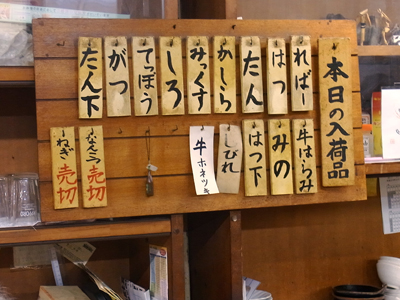 本日の入荷品
ればー
はつ
たん
かしら
みっくす
しろ
てっぽう
がつ
たん下
牛はらみ
みの
はつ下
しびれ
牛ホネツキ
なんこつ 売切
ねぎ 売切